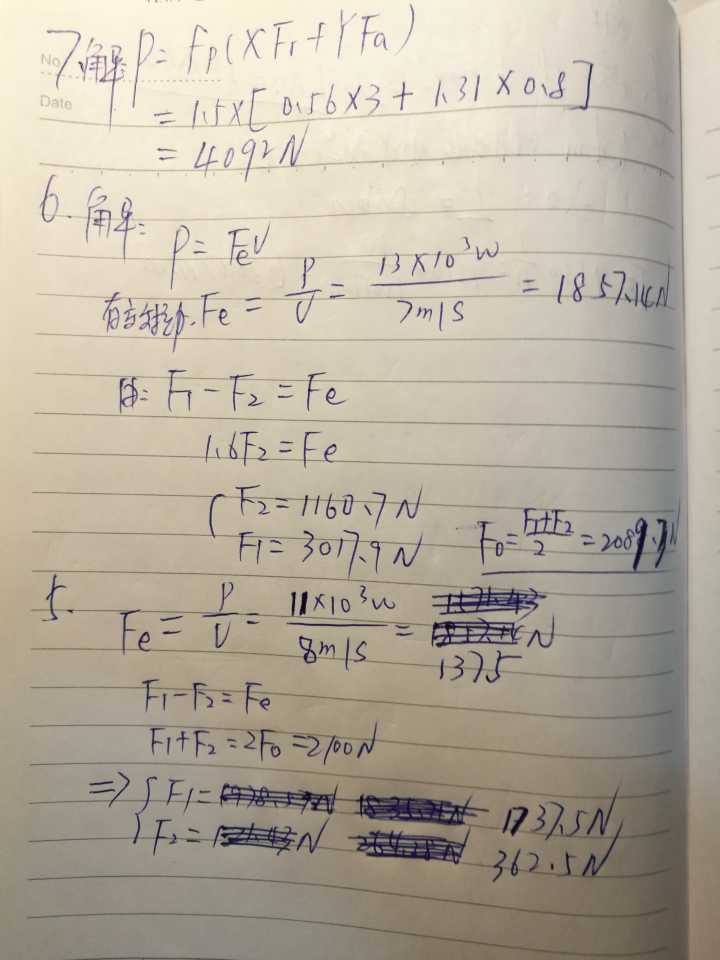 No.
Date
7.解 P = fp(XFr+YFa)
= 1.5×[0.56×3+1.31×0.8]
= 4092N
6. 解:
P = FeV
有效拉力.Fe = P/V = 13×10³w/7m/s = 1857.14N
由: F1-F2 = Fe
1.6F2 = Fe
{F2 = 1160.7N
F1 = 3017.9N F0 = F1+F2/2 = 2089.3N
5.
Fe = P/V = 11×10³w/8m/s = N
1375
F1-F2 = Fe
F1+F2 = 2F0 = 2100N
=> {F1 = 1737.5N
F2 = 362.5N